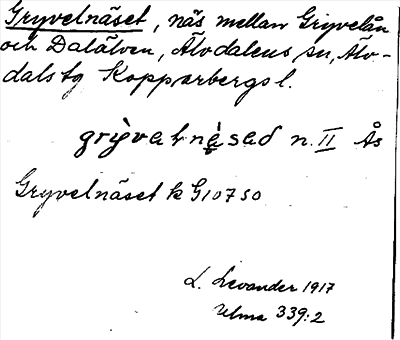 Gryvelnäset, näs mellan Gryvelån
och Dalälven, Älvdalens sn, Älv-
dals tg Kopparbergs l.
n. II Ås
Gryvelnäset k G10750
L. Levander 1917
Ulma 339:2